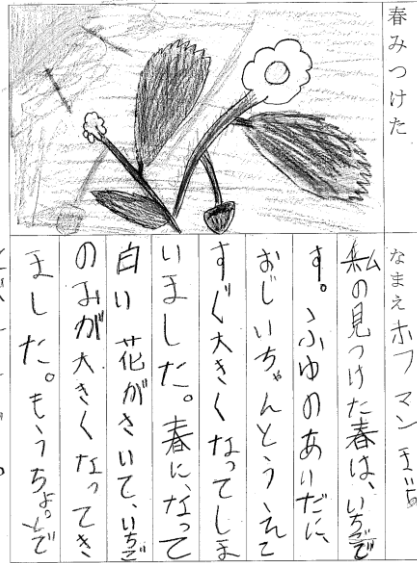 春みつけた
なまえ ホフマン
私の見つけた春は、いちごで
す。ふゆのあいだに、
おじいちゃんとうえて
すぐ大きくなってしま
いました。春に、なって
白い花がさいて、いちご
のみが大きくなってき
ました。もうちょっとで